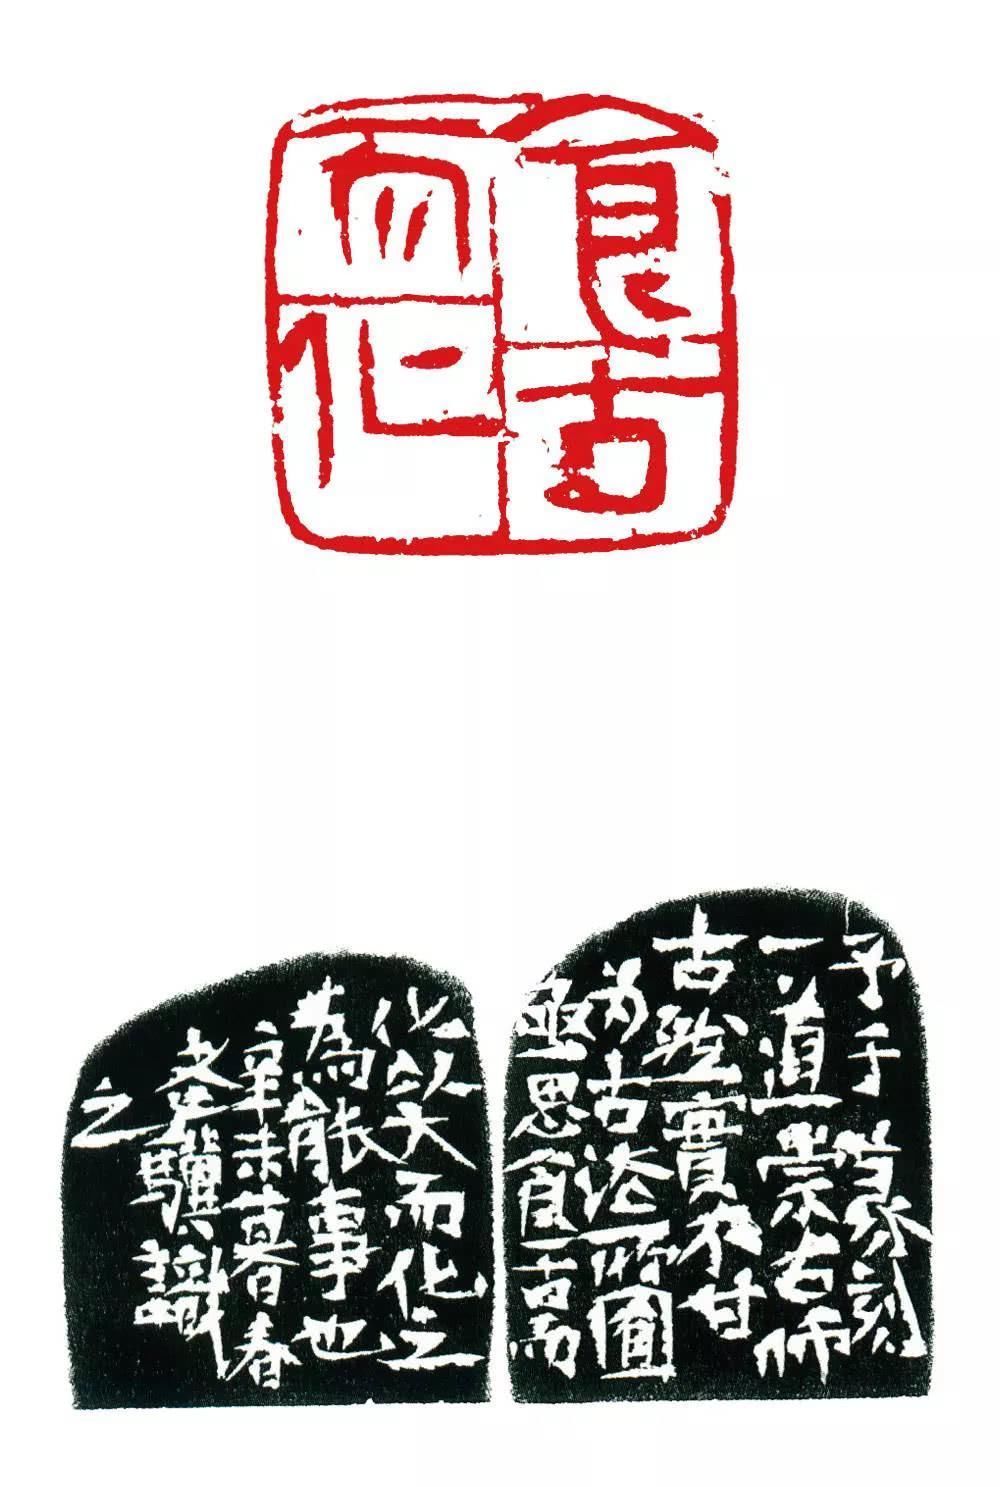 食古
而化
予于篆刻
一道崇古師
古實不甘
为古法所囿
亟思食古而
化以大而化之
為能事也
辛未暮春
驥識
之